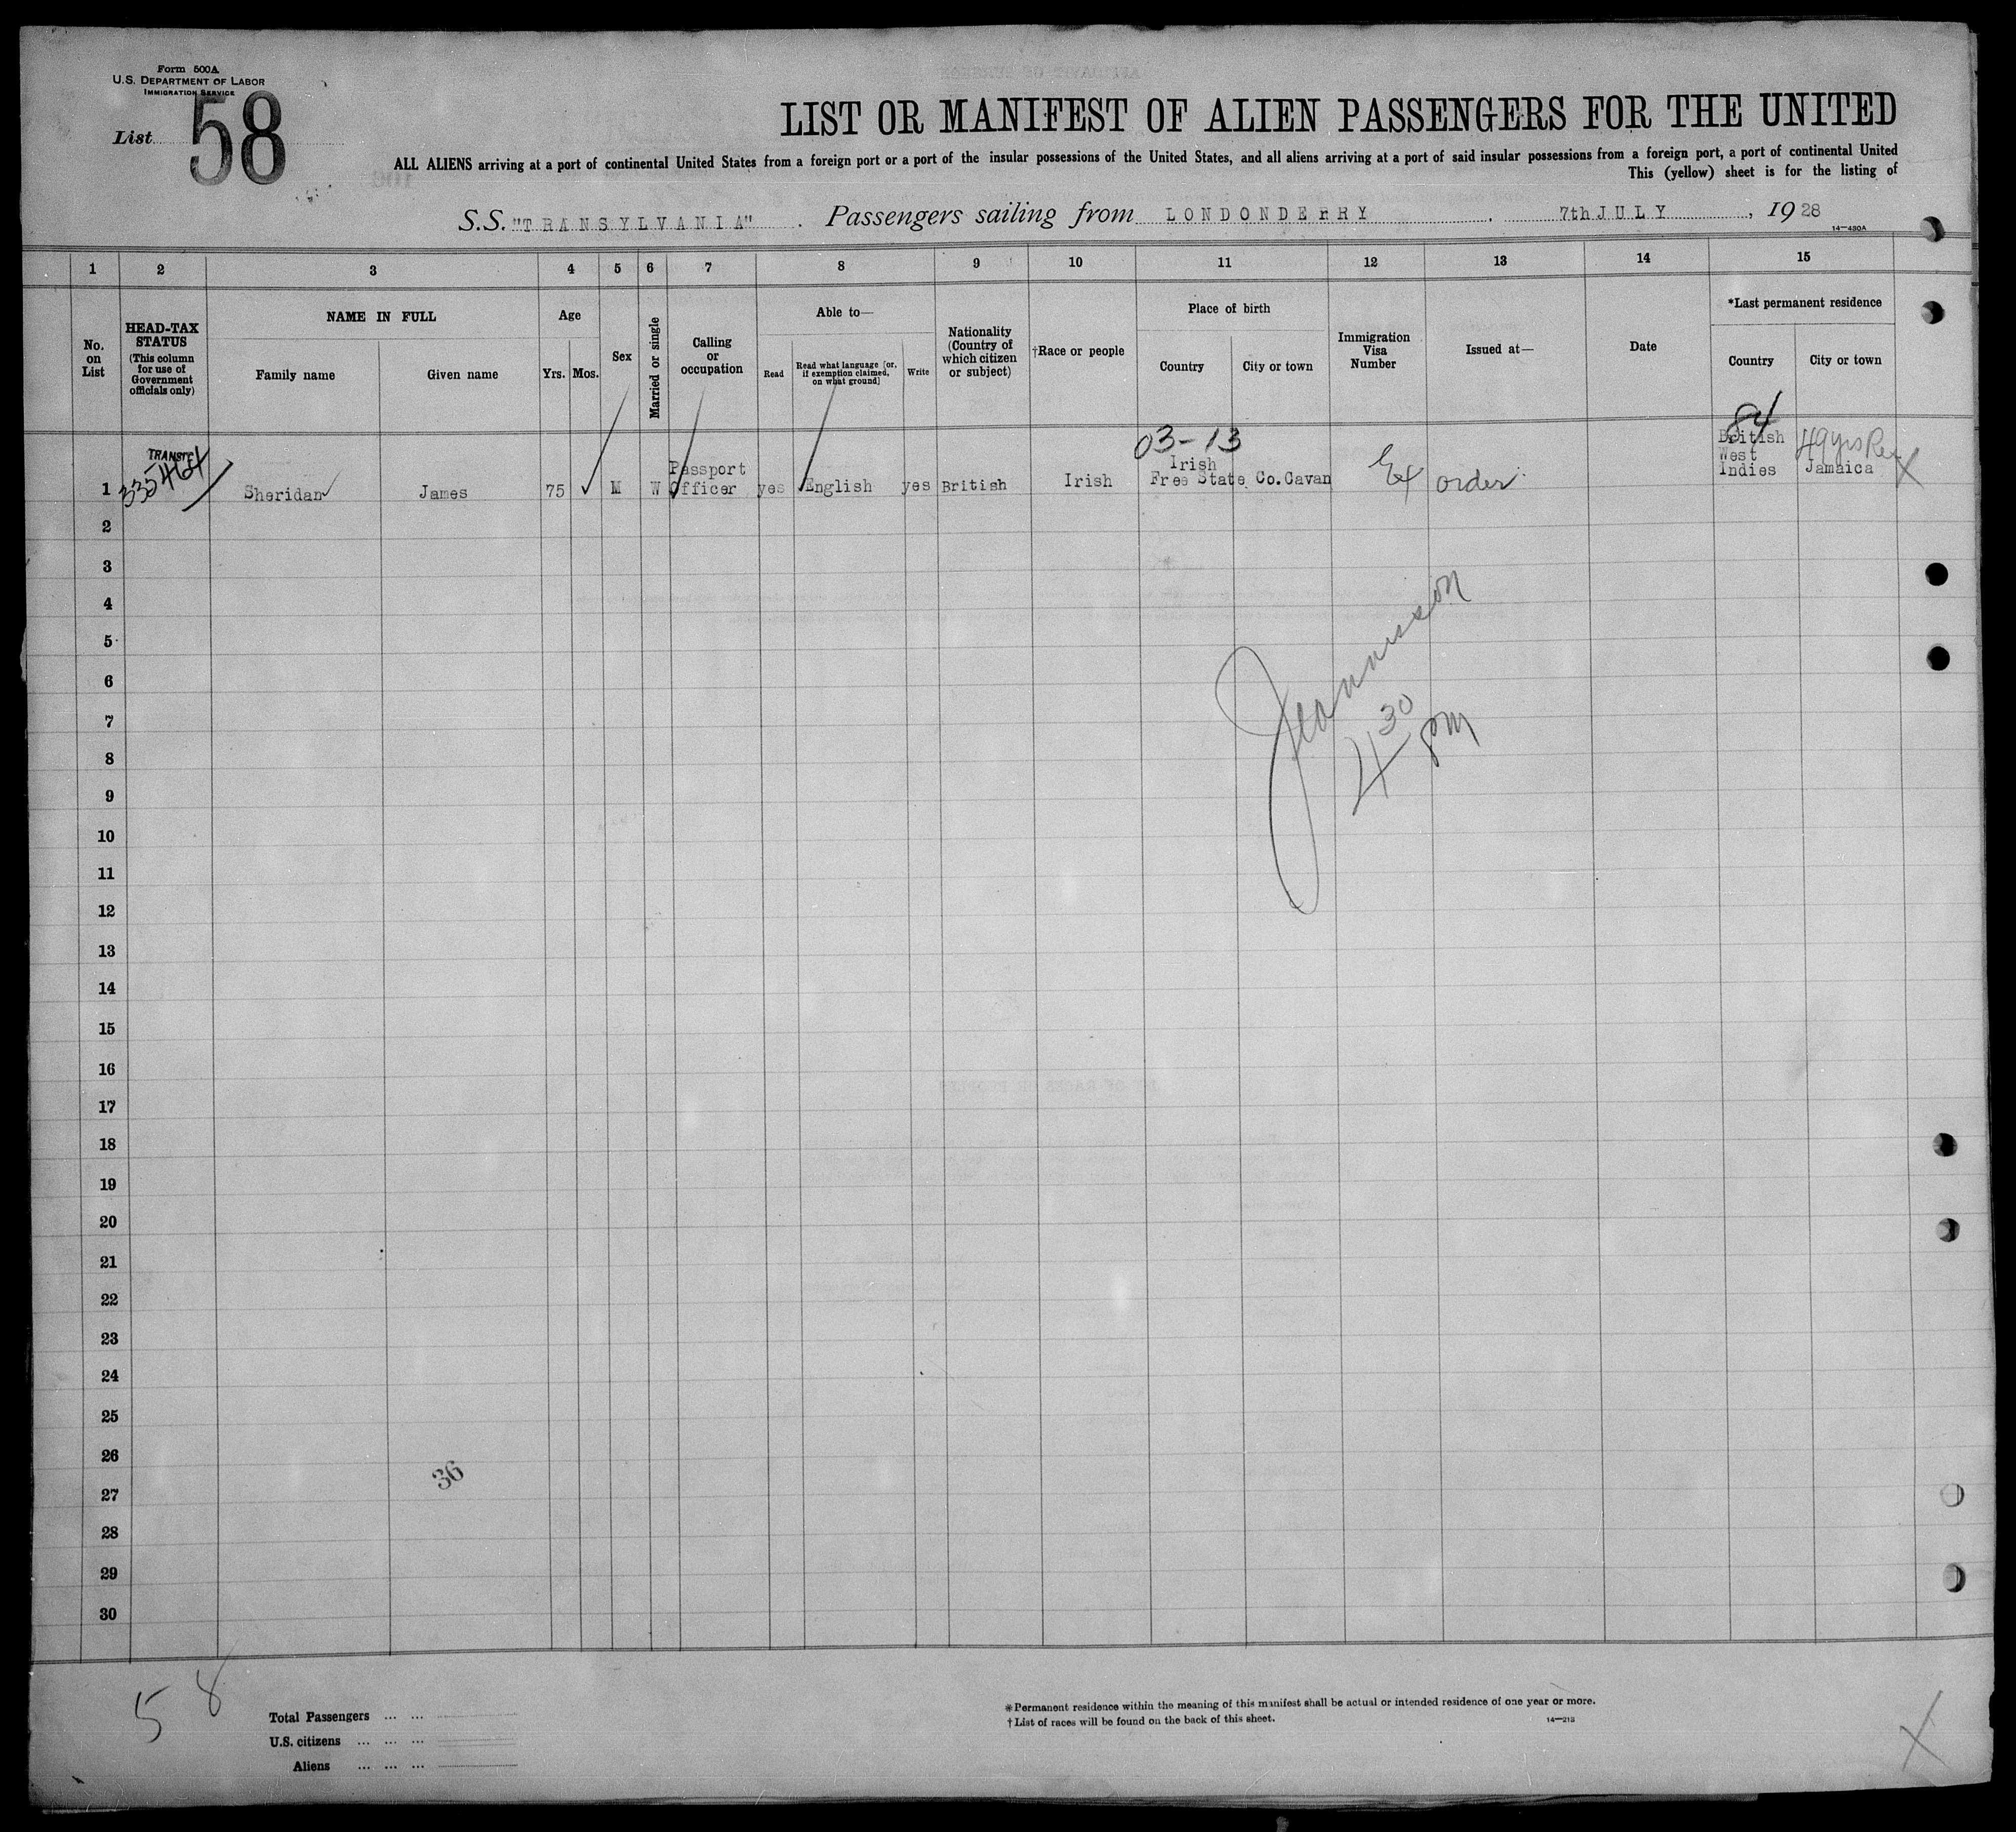 Form 500A
U.S. DEPARTMENT OF LABOR
IMMIGRATION SERVICE
List 58
LIST OR MANIFEST OF ALIEN PASSENGERS FOR THE UNITED
ALL ALIENS arriving at a port of continental United States from a foreign port or a port of the insular possessions of the United States, and all aliens arriving at a port of said insular possessions from a foreign port, a port of continental United
This (yellow) sheet is for the listing of
S.S. "TRANSYLVANIA". Passengers sailing from LONDONDERRY. 7th JULY, 1928
14—480A
1 2 3 4 5 6 7 8 9 10 11 12 13 14 15
No. on List
HEAD-TAX STATUS
(This column for use of Government officials only)
NAME IN FULL
Family name Given name
Age
Yrs. Mos.
Sex
Married or single
Calling or occupation
Able to—
Read Read what language [or, if exemption claimed, on what ground] Write
Nationality (Country of which citizen or subject)
†Race or people
Place of birth
Country City or town
Immigration Visa Number
Issued at—
Date
*Last permanent residence
Country City or town
TRANSIT
335464
03-13
84
49yrs Res
1 Sheridan James 75 M W Passport Officer yes English yes British Irish Irish Free State Co.Cavan Ex order British West Indies Jamaica X
2
3
4
5
6
7
8
9
10
11
12
13
14
15
16
17
18
19
20
21
22
23
24
25
26
27
28
29
30
4 30 pm
36
58
Total Passengers ... ...
U.S. citizens ... ... ...
Aliens ... ... ...
*Permanent residence within the meaning of this manifest shall be actual or intended residence of one year or more.
†List of races will be found on the back of this sheet.
14—213
X